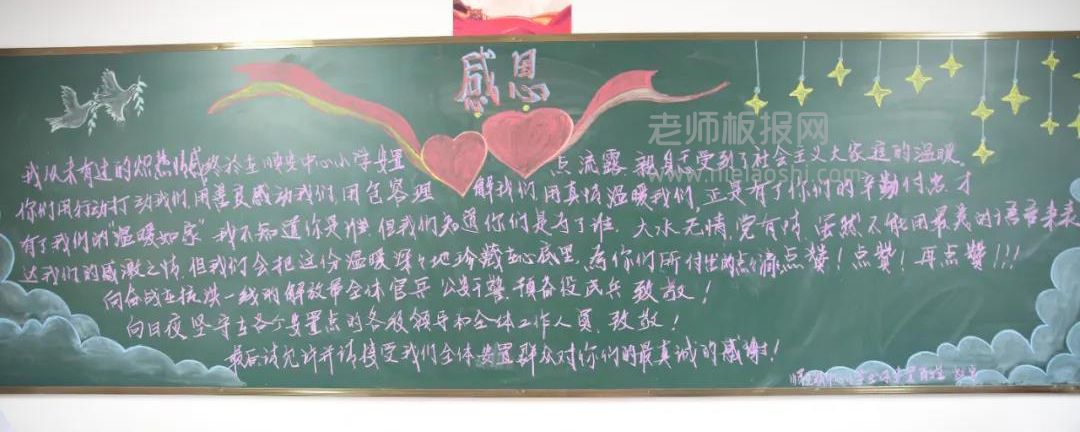 感恩
老师板报网
www.mielaoshi.com
我从未有过的炽热情感终于在顺安中心小学安置点流露 亲身感受到了社会主义大家庭的温暖。
你们用行动打动我们,用善良感动我们,用包容理解我们,用真情温暖我们,正是有了你们的辛勤付出,才
有了我们的“温暖如家”我不知道你是谁,但我们知道你们是为了谁。大水无情,党有情,虽然不能用最美的语言来表
达我们的感激之情,但我们会把这份温暖深々地珍藏在心底里,为你们所付出的点滴点赞!点赞!再点赞!!!
向奋战在抗洪一线的解放军全体官兵 公安干警 预备役民兵 致敬!
向日夜坚守在各个安置点的各级领导和全体工作人员 致敬!
最后请允许并请接受我们全体安置群众对你们的最真诚的感谢!